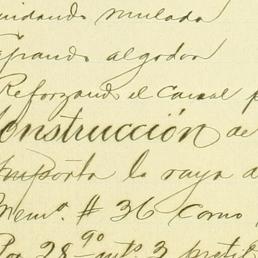 uidando mulada
Tapando algodon
Reforzando el Canal p
Construcción de
Importa la raya d
Mem°. # 36 como
Por 28